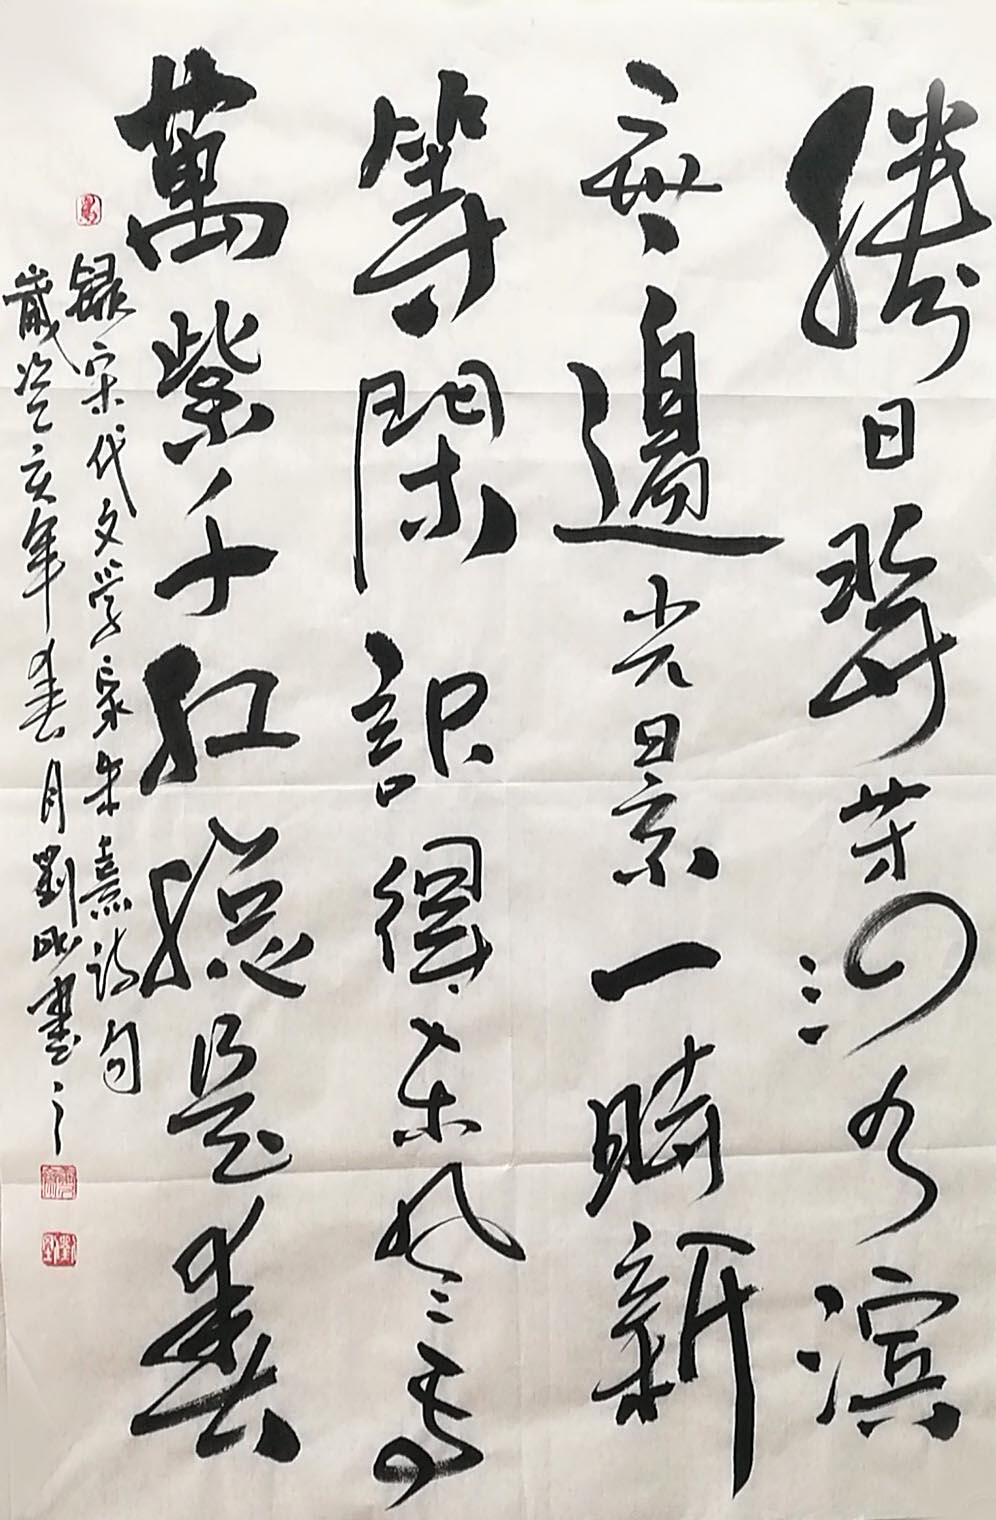 勝日尋芳泗水濱
無邊光景一時新
等閑識得東風面
萬紫千紅總是春
録宋代文学家朱熹詩句
歲次己亥年春月劉書之